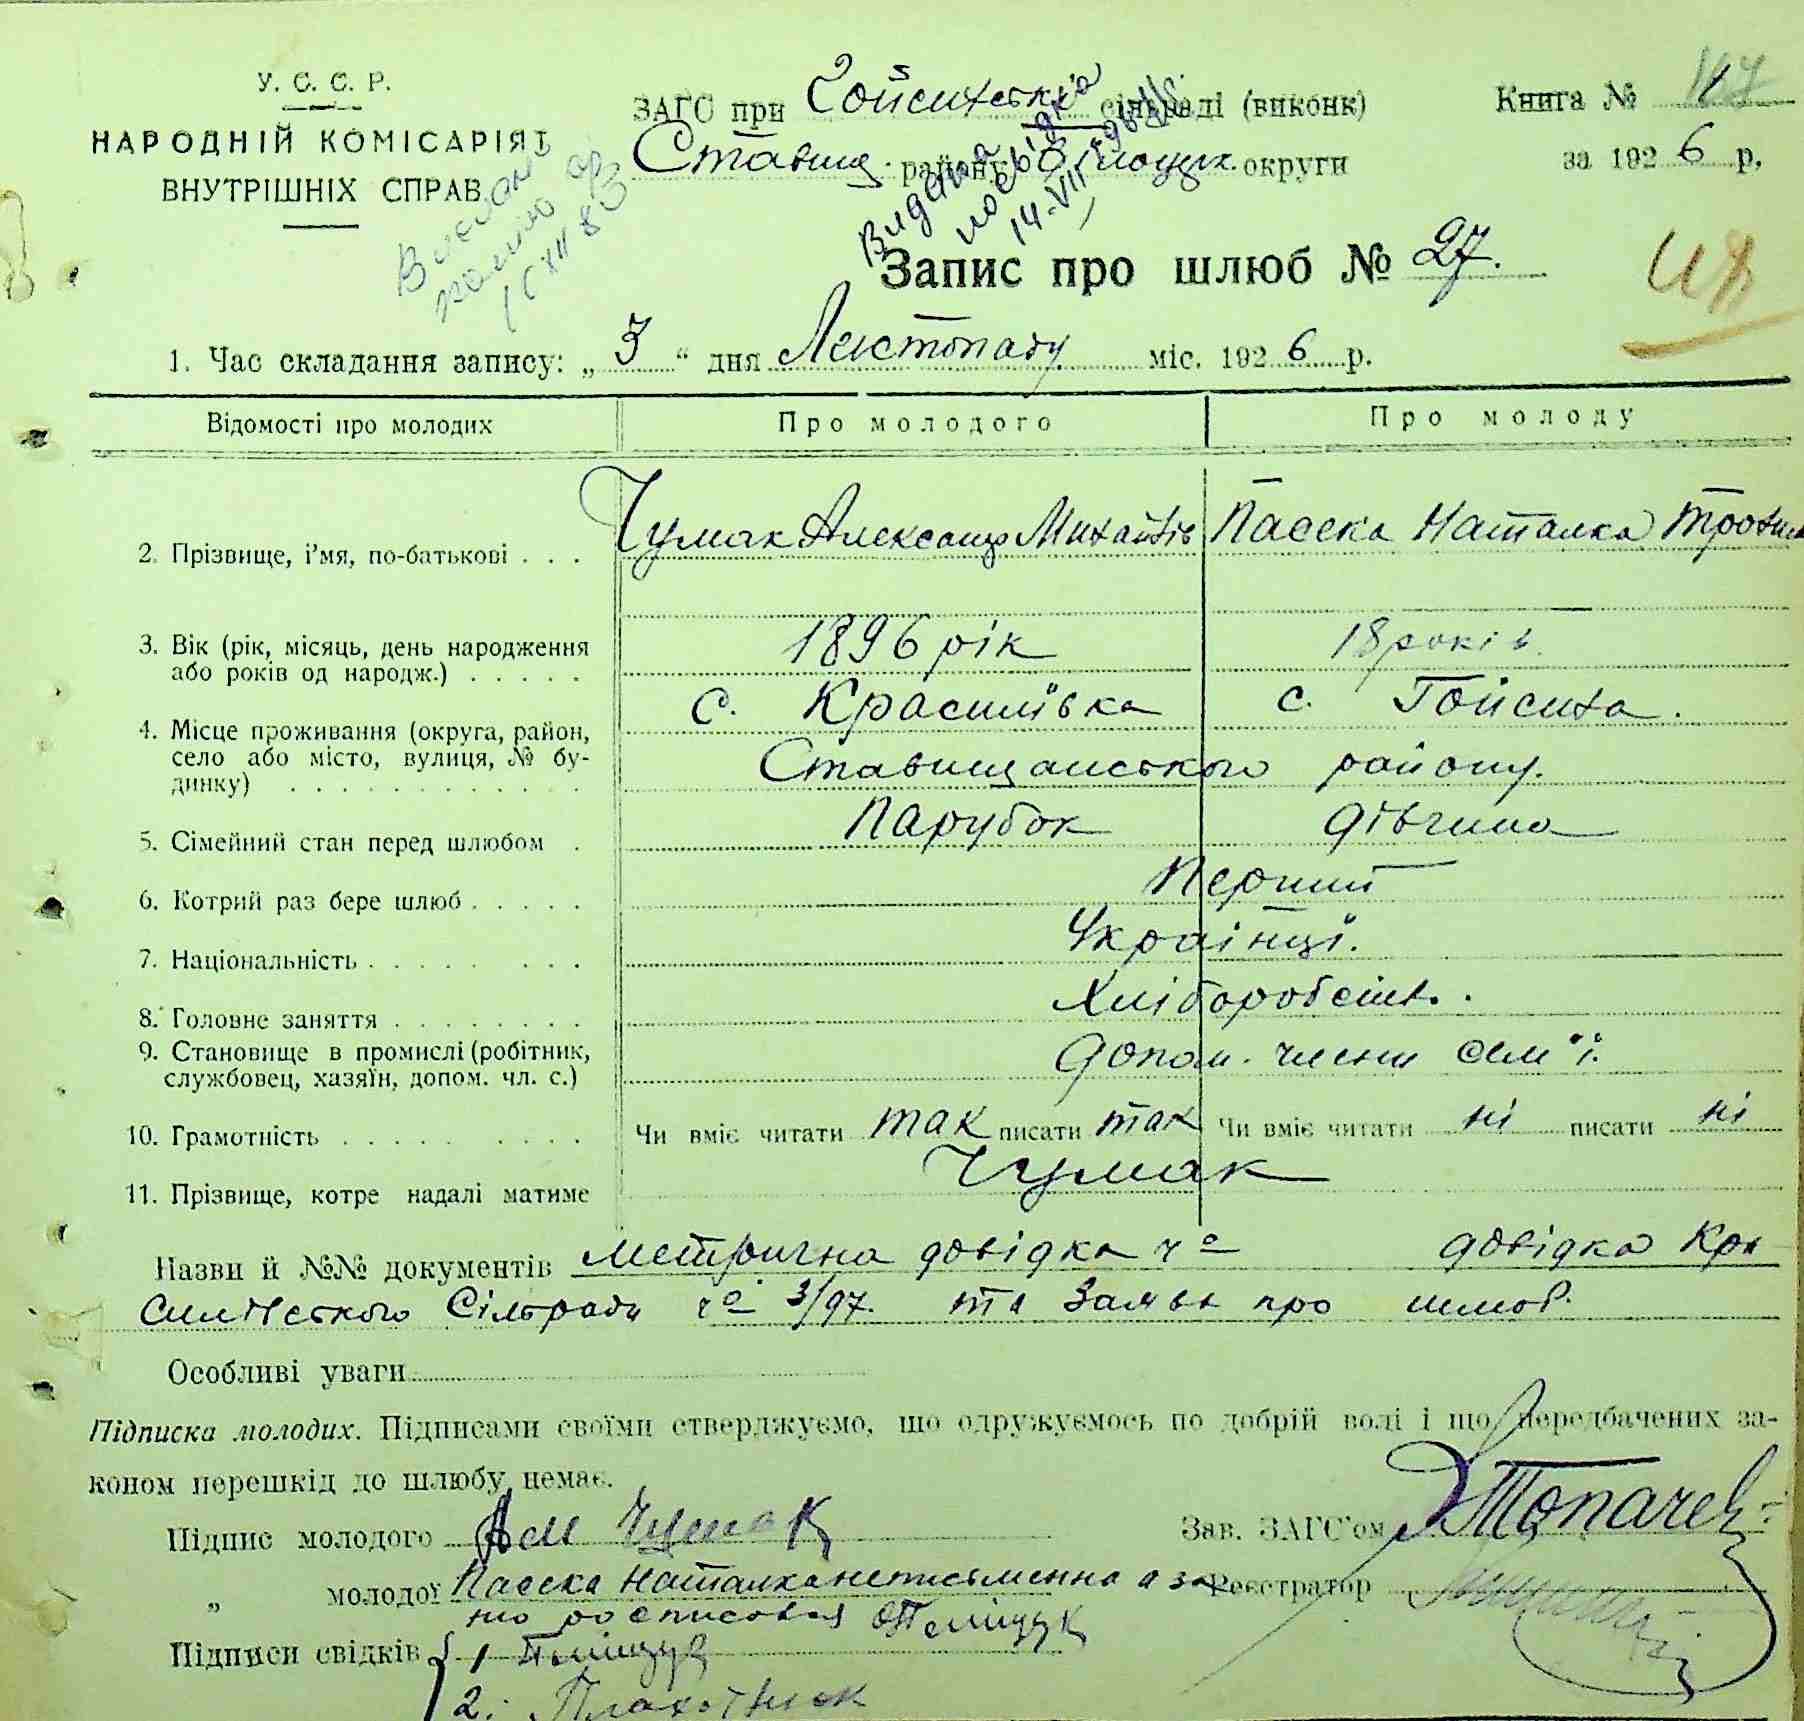 У. С. С. Р.
НАРОДНІЙ КОМІСАРІЯТ
ВНУТРІШНІХ СПРАВ
ЗАГС при Гойсихській сільраді (виконк)
Ставищ. району Білоцерк. округи
Книга №
за 1926 р.
Видана
14-VII
Запис про шлюб № 27.
1. Час складання запису: „3“ дня Листопаду міс. 1926 р.
Відомості про молодих Про молодого Про молоду
2. Прізвище, і'мя, по-батькові . . . Чумак Александр Михайлів Пасека Наталка
3. Вік (рік, місяць, день народження 1896 рік 18 років.
або років од народж.) . . . . .
4. Місце проживання (округа, район, с. Красилівка с. Гойсиха.
село або місто, вулиця, № бу- Ставищанського району.
динку) . . . . . . . . . . . .
5. Сімейний стан перед шлюбом . Парубок дівчина
6. Котрий раз бере шлюб . . . . . Перший
7. Національність . . . . . . . . Українці.
8. Головне заняття . . . . . . . . Хліборобств.
9. Становище в промислі (робітник, Допом. члени сем'ї.
службовец, хазяїн, допом. чл. с.)
10. Грамотність . . . . . . . . . Чи вміє читати так писати так Чи вміє читати ні писати ні
11. Прізвище, котре надалі матиме Чумак
Назви й №№ документів метрична довідка чо довідка Кра
силівського Сільради чо 3/97. та Заява про шлюб.
Особливі уваги
Підписка молодих. Підписами своїми стверджуємо, що одружуємось по добрій волі і що передбачених за-
коном перешкід до шлюбу немає.
Підпис молодого Ал Чумак
Зав. ЗАГС'ом
„ молодої Пасека Наталка неписьменна а за
Реєстратор
Підписи свідків 1
2. Плахотнюк